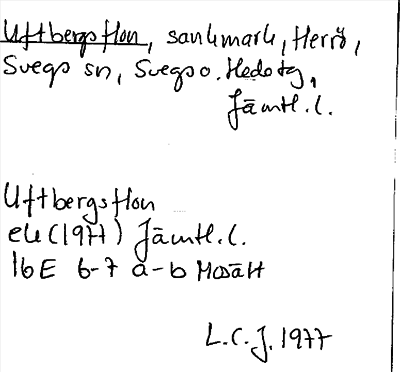 Uftbergsflon, sankmark, Herrö,
Svegs sn, Svegs o. Hede tg,
Jämtl. l.
Uftbergsflon
ek (1977) Jämtl. l.
16E 6-7 a-b Mosätt
L.C.J. 1977